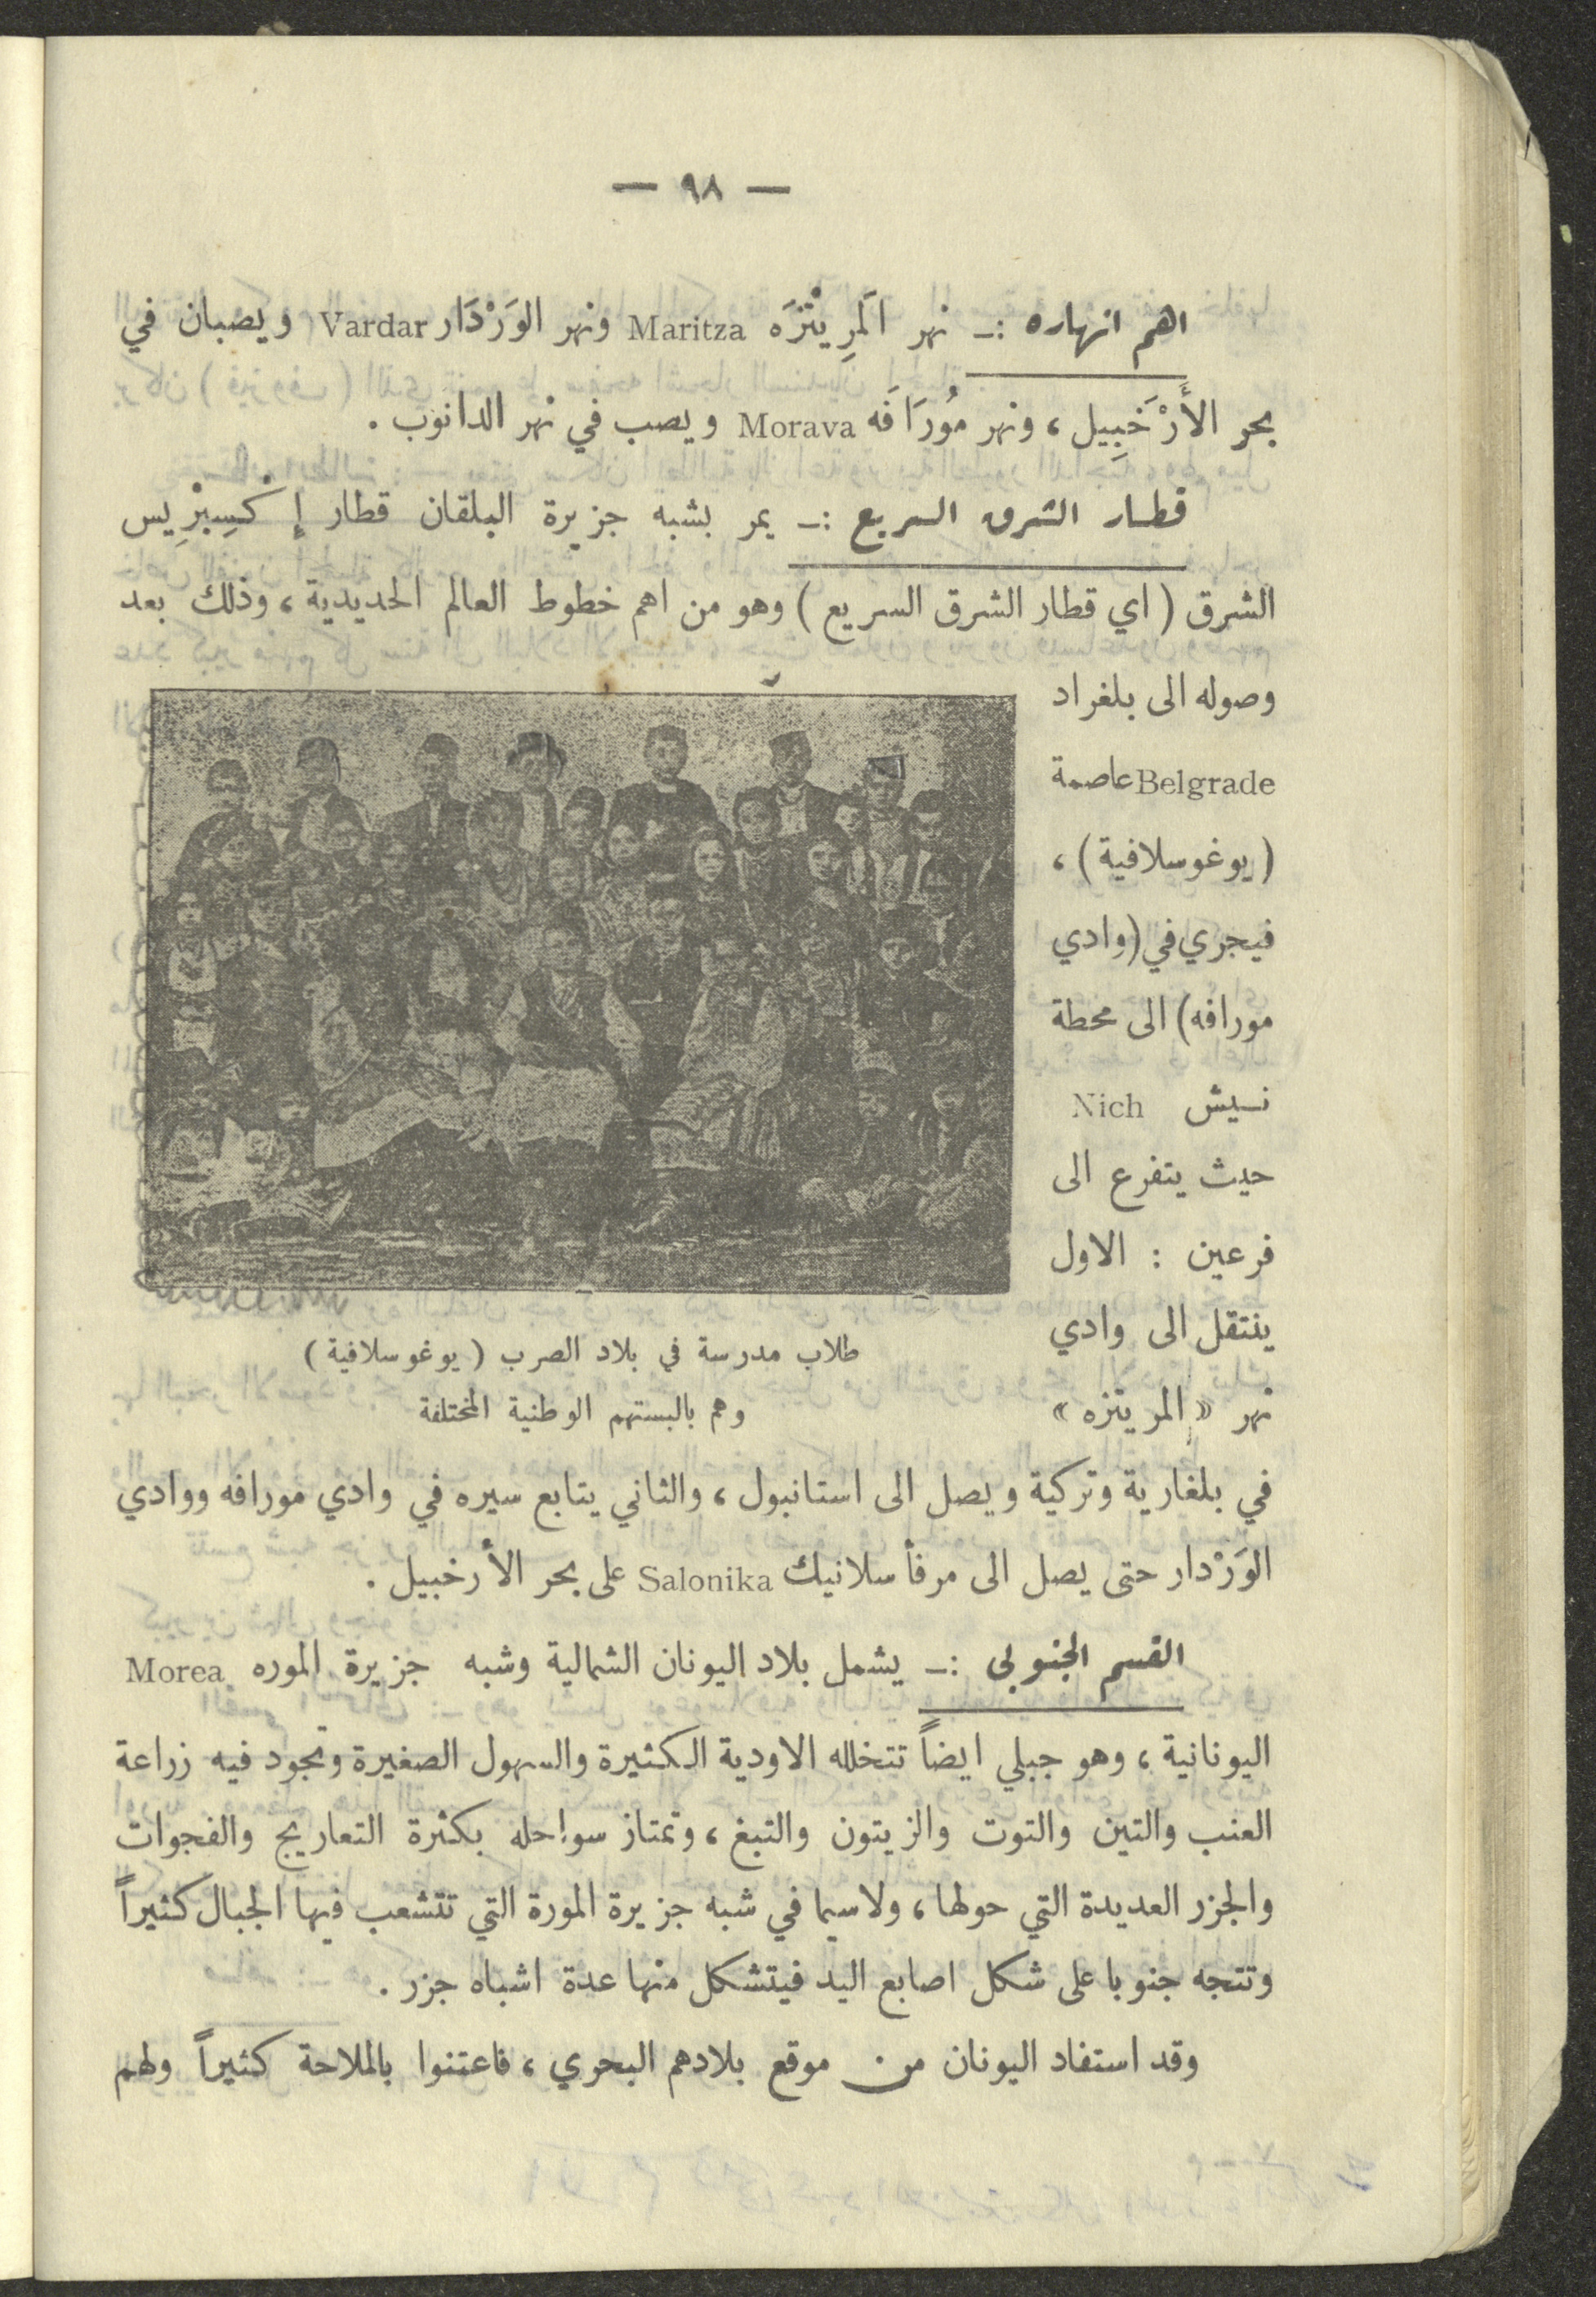 — ٩٨ —
اهم انهاره :ـ نهر المَرِيتْزَه Maritza ونهر الوَرْدَار Vardar ويصبان في
بحر الأَرْخَبِيل ، ونهر مُورَافَه Morava ويصب في نهر الدانوب .
قطار الشرق السريع :ـ يمر بشبه جزيرة البلقان قطار إِكْسِبْرِيس
الشرق ( اي قطار الشرق السريع ) وهو من اهم خطوط العالم الحديدية ، وذلك بعد
وصوله الى بلغراد
Belgrade عاصمة
( يوغوسلافية ) ،
فيجري في (وادي
مورافه) الى محطة
نيش Nich
حيث يتفرع الى
فرعين : الاول
ينتقل الى وادي
نهر « المريتزه »
طلاب مدرسة في بلاد الصرب ( يوغوسلافية )
وهم بالبستهم الوطنية المختلفة
في بلغارية وتركية ويصل الى استانبول ، والثاني يتابع سيره في وادي مورافه ووادي
الوَرْدار حتى يصل الى مرفأ سلانيك Salonika على بحر الأرخبيل .
القسم الجنوبي :ـ يشمل بلاد اليونان الشمالية وشبه جزيرة الموره Morea
اليونانية ، وهو جبلي ايضاً تتخلله الاودية الكثيرة والسهول الصغيرة وتجود فيه زراعة
العنب والتين والتوت والزيتون والتبغ ، وتمتاز سواحله بكثرة التعاريج والفجوات
والجزر العديدة التي حولها ، ولاسيما في شبه جزيرة المورة التي تتشعب فيها الجبال كثيراً
وتتجه جنوبا على شكل اصابع اليد فيتشكل منها عدة اشباه جزر .
وقد استفاد اليونان من موقع بلادهم البحري ، فاعتنوا بالملاحة كثيراً ولهم